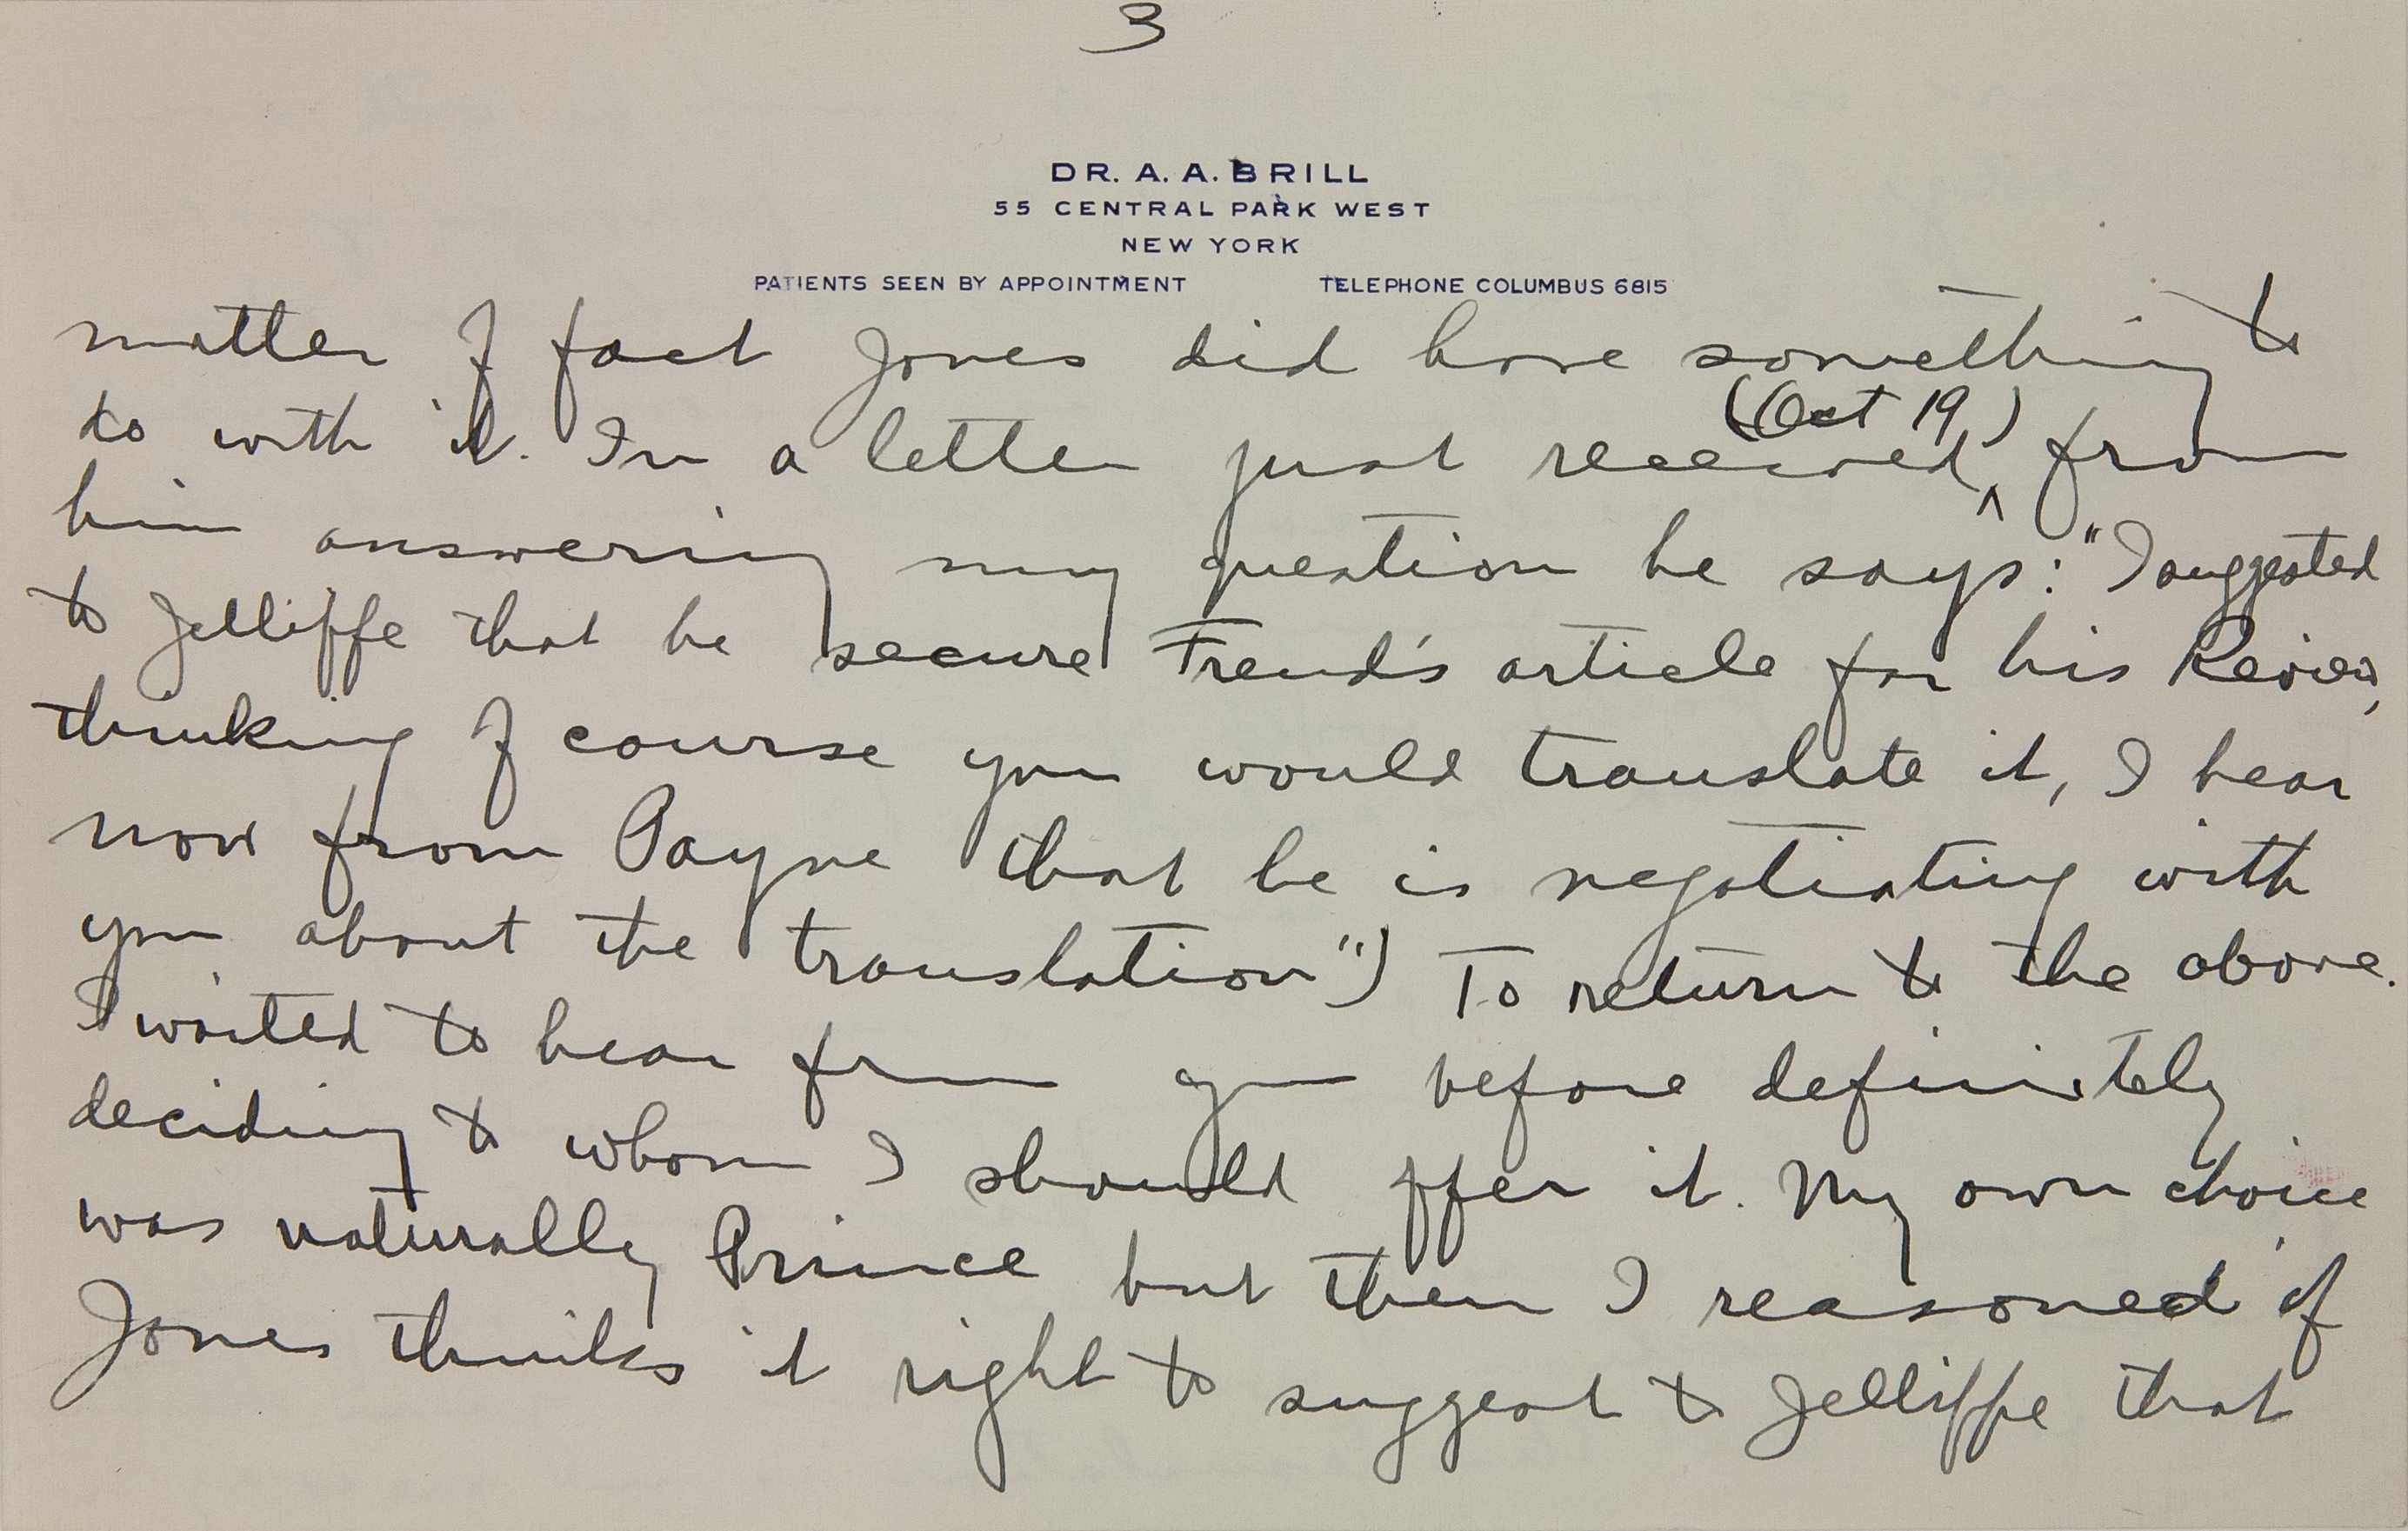 3
DR. A. A. BRILL
55 CENTRAL PARK WEST
NEW YORK
PATIENTS SEEN BY APPOINTMENT TELEPHONE COLUMBUS 6815
matter of fact Jones did have something to
do with it. In a letter just received ^ (Oct 19) from
him answering my question he says: "I suggested
to Jelliffe that he secure Freud's article for his Review,
thinking of course you would translate it, I hear
now from Payne that he is negotiating with
you about the translation") To return to the above.
I waited to hear from you before definitely
deciding to whom I should offer it. My own choice
was naturally Prince but then I reasoned if
Jones thinks it right to suggest to Jelliffe that